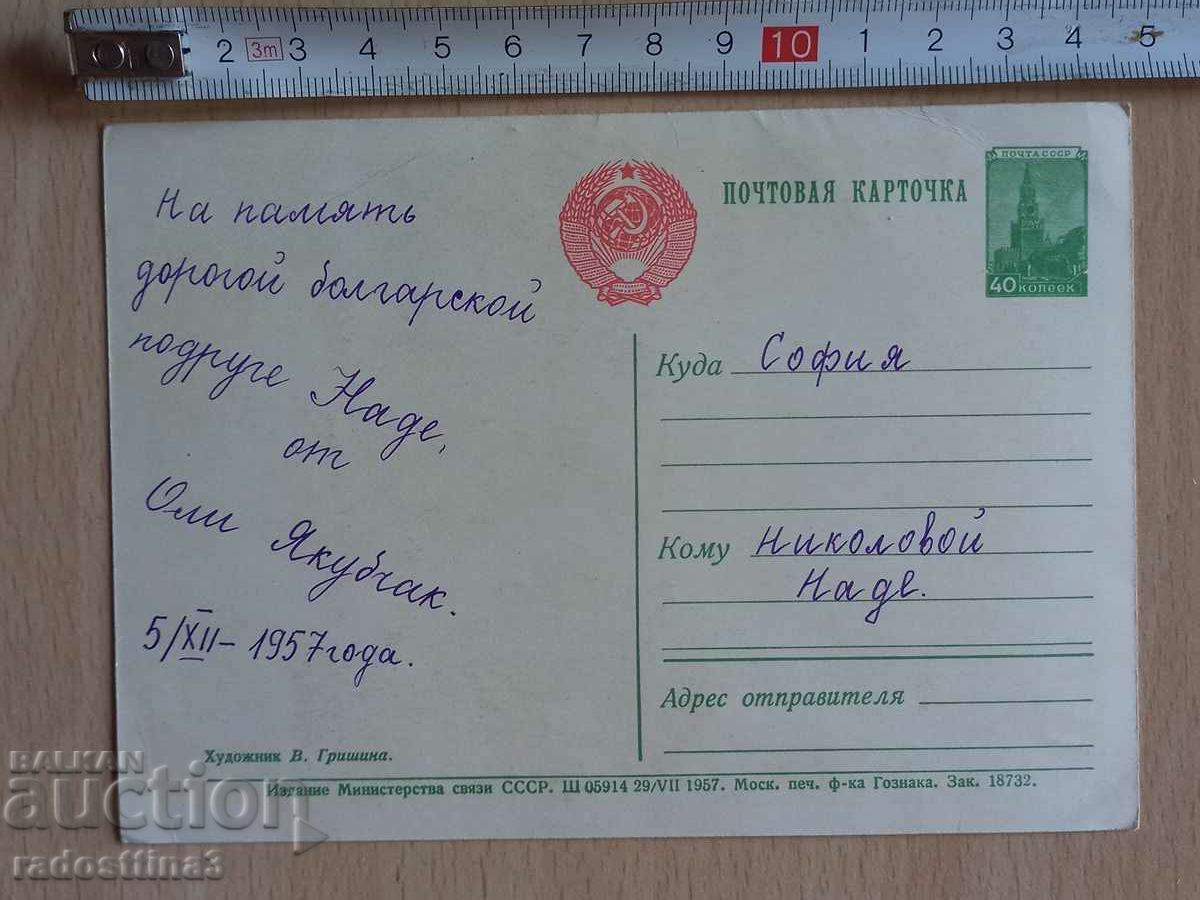 2 3m 3 4 5 6 7 8 9 10 1 2 3 4 5
ПОЧТА СССР
40 КОПЕЕК
ПОЧТОВАЯ КАРТОЧКА
На память
дорогой болгарской
подруге Наде,
от
Оли Якубчак.
5/XII – 1957 года.
Куда София
Кому Николовой
Наде.
Адрес отправителя
Художник В. Гришина.
Издание Министерства связи СССР. Ш 05914 29/VII 1957. Моск. печ. ф-ка Гознака. Зак. 18732.
BALKAN
auction
radosttina3